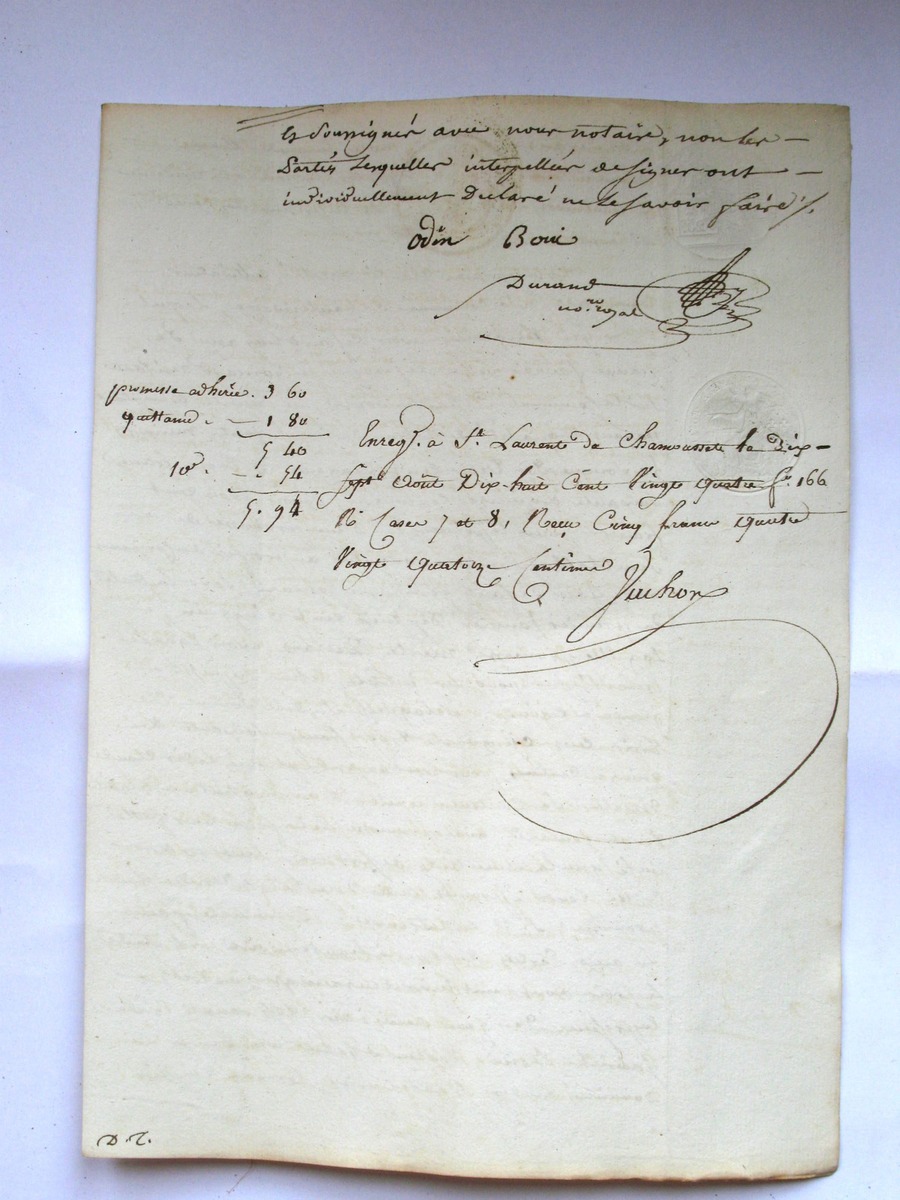 et soussignés avec nous notaire, non les
Parties lesquelles interpellées de signer ont
individuellement Declaré ne le savoir faire /.
odin Boui
Durand
no.re royal
promesse adhirée. 3 60
quittance. 1 80
5 40
10e. 54
5. 94
Enreg. à St. Laurent de Chamousset le Dix
sept août Dix huit Cent Vingt quatre fo. 166
Ro Cases 7 et 8, Reçu Cinq francs quatre
Vingt quatorze Centimes
Juchon
D. T.